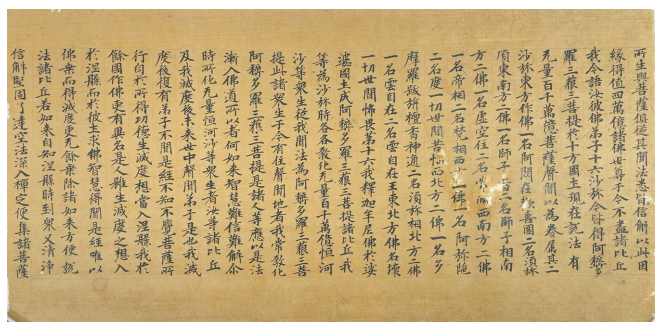 所生與菩薩俱從其聞法悉皆信解以此因
緣得值四萬億諸佛世尊于今不盡諸比丘
我今語汝彼佛弟子十六沙彌今皆得阿耨多
羅三藐三菩提於十方國土現在說法有
无量百千萬億菩薩聲聞以為眷屬其二
沙彌東方作佛一名阿閦在歡喜國二名須彌
頂東南方二佛一名師子音二名師子相南
方二佛一名虛空住二名常滅西南方二佛
一名帝相二名梵相西方二佛一名阿彌陀
二名度一切世間苦惱西北方二佛一名多
摩羅跋栴檀香神通二名須彌相北方二佛
一名雲自在二名雲自在王東北方佛名壞
一切世間怖畏第十六我釋迦牟尼佛於娑
婆國土成阿耨多羅三藐三菩提諸比丘我
等為沙彌時各各教化无量百千萬億恒河
沙等眾生從我聞法為阿耨多羅三藐三菩
提此諸眾生于今有住聲聞地者我常教化
阿耨多羅三藐三菩提是諸人等應以是法
漸入佛道所以者何如來智慧難信難解尒
時所化无量恒河沙等眾生者汝等諸比丘
及我滅度後未來世中聲聞弟子是也我滅
度後復有弟子不聞是經不知不覺菩薩所
行自於所得功德生滅度想當入涅槃我於
餘國作佛更有異名是人雖生滅度之想入
於涅槃而於彼土求佛智慧得聞是經唯以
佛乘而得滅度更无餘乘除諸如來方便說
法諸比丘若如來自知涅槃時到眾又清淨
信解堅固了達空法深入禪定便集諸菩薩